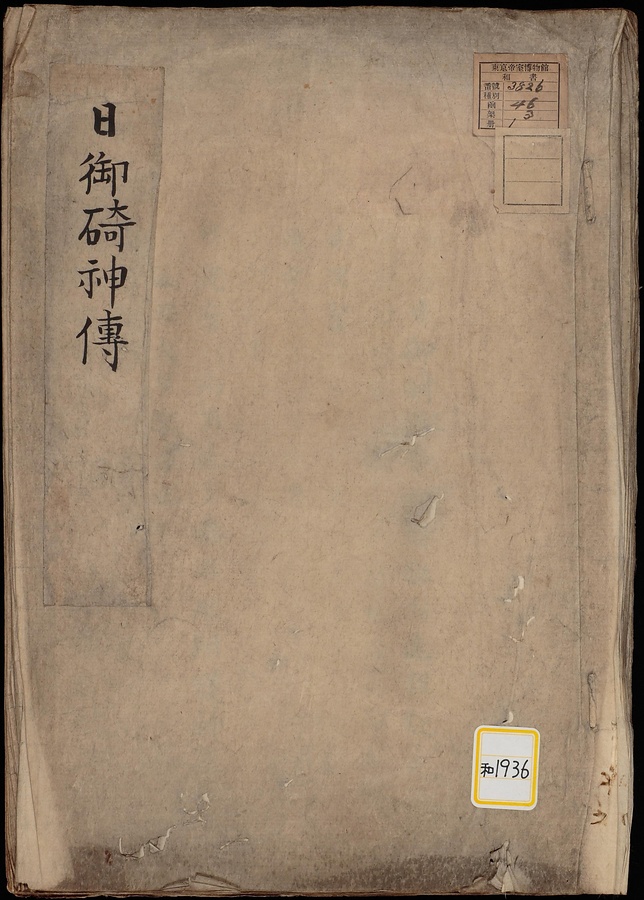 日御碕神傳
東京帝室博物館
和書
番號 3826
種別
函 46
架 3
冊 1
和1936